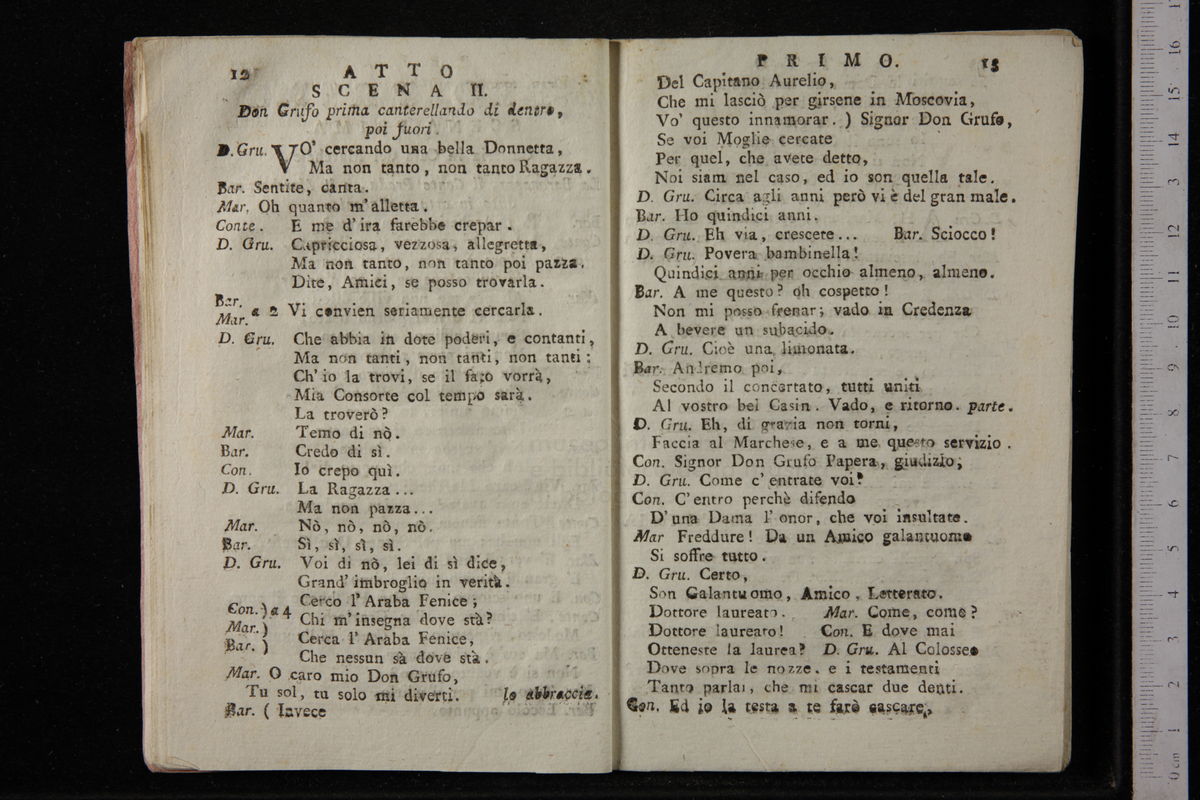 12 ATTO
SCENA II.
Don Grufo prima canterellando di dentro,
poi fuori.
D. Gru. VO' cercando una bella Donnetta,
Ma non tanto, non tanto Ragazza.
Bar. Sentite, canta.
Mar. Oh quanto m'alletta.
Conte. E me d'ira farebbe crepar.
D. Gru. Capricciosa, vezzosa, allegretta,
Ma non tanto, non tanto poi pazza.
Dite, Amici, se posso trovarla.
Bar.
Mar. a 2 Vi convien seriamente cercarla.
D. Gru. Che abbia in dote poderi, e contanti,
Ma non tanti, non tanti, non tanti:
Ch'io la trovi, se il fato vorrà,
Mia Consorte col tempo sarà.
La troverò?
Mar. Temo di nò.
Bar. Credo di sì.
Con. Io crepo quì.
D. Gru. La Ragazza...
Ma non pazza...
Mar. Nò, nò, nò, nò.
Bar. Sì, sì, sì, sì.
D. Gru. Voi di nò, lei di sì dice,
Grand' imbroglio in verità.
Cerco l'Araba Fenice;
Con. ) a 4 Chi m'insegna dove stà?
Mar. ) Cerca l'Araba Fenice,
Bar. ) Che nessun sà dove stà.
Mar. O caro mio Don Grufo,
Tu sol, tu solo mi diverti. lo abbraccia.
Bar. ( Invece
PRIMO. 13
Del Capitano Aurelio,
Che mi lasciò per girsene in Moscovia,
Vo' questo innamorar. ) Signor Don Grufo,
Se voi Moglie cercate
Per quel, che avete detto,
Noi siam nel caso, ed io son quella tale.
D. Gru. Circa agli anni però vi è del gran male.
Bar. Ho quindici anni.
D. Gru. Eh via, crescete... Bar. Sciocco!
D. Gru. Povera bambinella!
Quindici anni per occhio almeno, almeno.
Bar. A me questo? oh cospetto!
Non mi posso frenar; vado in Credenza
A bevere un subacido.
D. Gru. Cioè una limonata.
Bar. Andremo poi,
Secondo il concertato, tutti uniti
Al vostro bel Casin. Vado, e ritorno. parte.
D. Gru. Eh, di grazia non torni,
Faccia al Marchese, e a me questo servizio.
Con. Signor Don Grufo Papera, giudizio;
D. Gru. Come c'entrate voi?
Con. C'entro perchè difendo
D'una Dama l'onor, che voi insultate.
Mar Freddure! Da un Amico galantuomo
Si soffre tutto.
D. Gru. Certo,
Son Galantuomo, Amico, Letterato.
Dottore laureato. Mar. Come, come?
Dottore laureato! Con. E dove mai
Otteneste la laurea? D. Gru. Al Colosseo
Dove sopra le nozze, e i testamenti
Tanto parlai, che mi cascar due denti.
Con. Ed io la testa a te farò cascare,